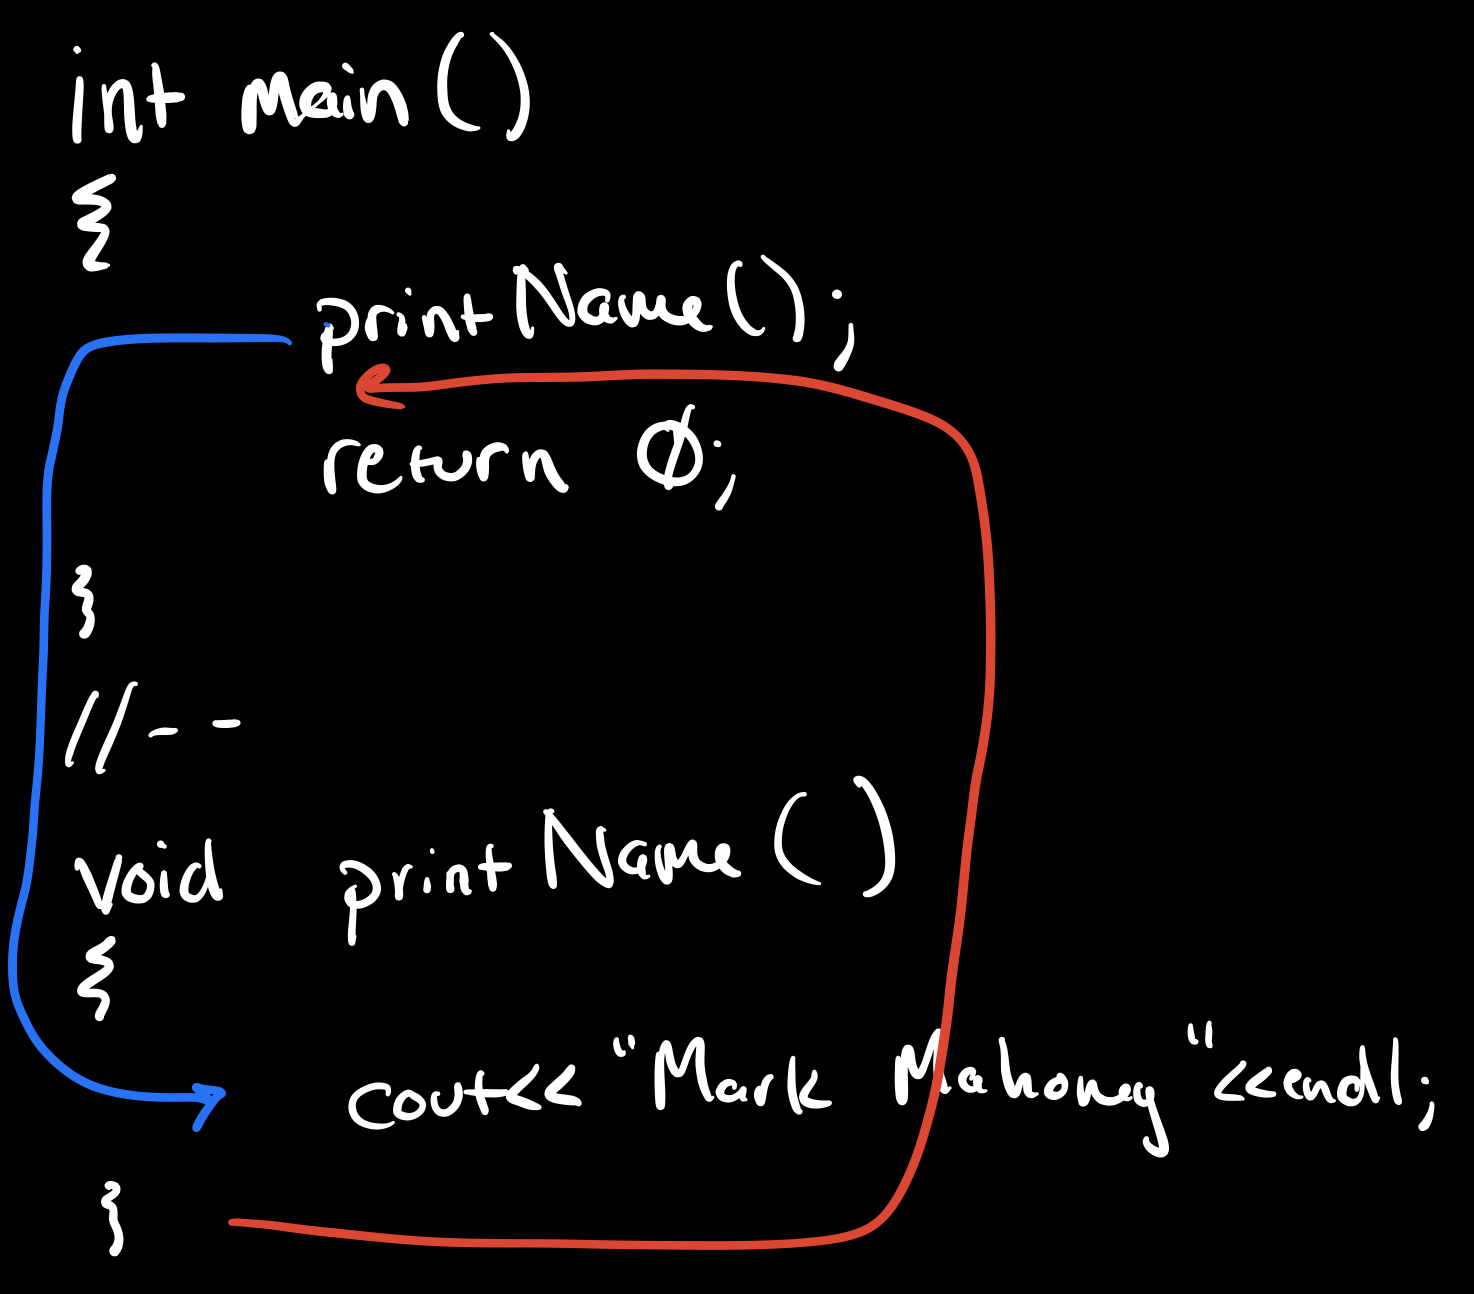 int main()
{
printName();
return 0;
}
//--
void printName()
{
cout<< "Mark Mahoney"<<endl;
}